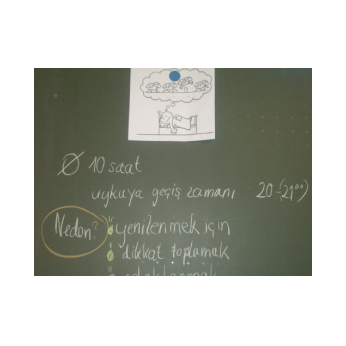 Ø 10 saat
uykuya geçiş zamanı 20-(21⁰⁰)
Neden? yenilenmek için
dikkat toplamak